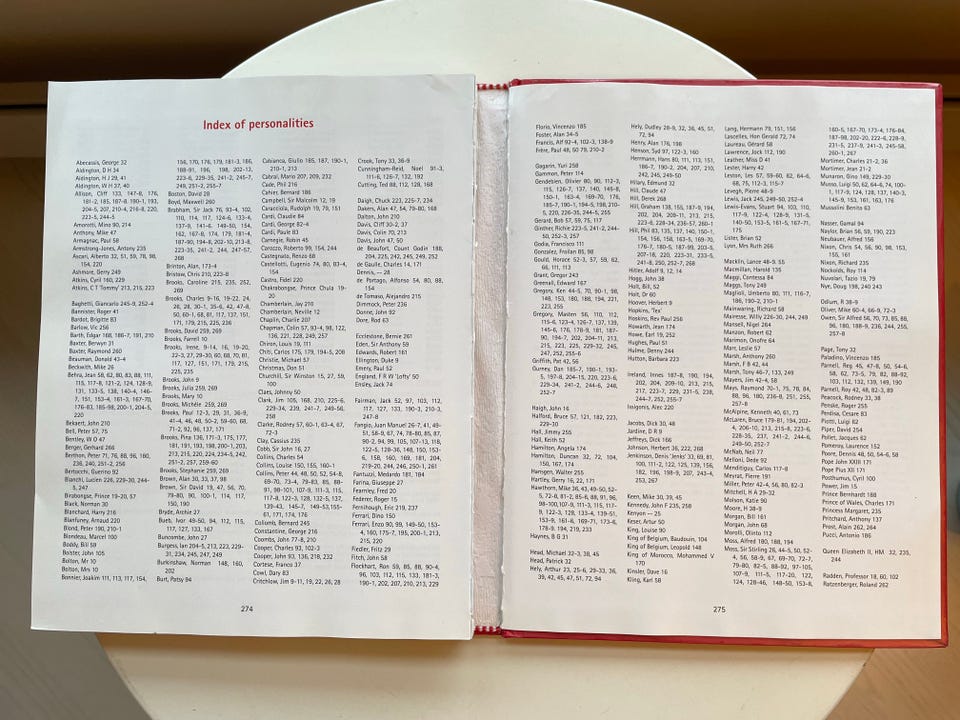 Index of personalities
Abecassis, George 32
Aldington, D H 34
Aldington, H J 29, 41
Aldington, W H 37, 40
Allison, Cliff 133, 147-8, 176,
181-2, 185, 187-8, 190-1, 193,
204-5, 207, 210-4, 216-8, 220,
223-5, 244-5
Amorotti, Mino 90, 214
Anthony, Mike 47
Armagnac, Paul 58
Armstrong-Jones, Antony 235
Ascari, Alberto 32, 51, 59, 78, 98,
154, 220
Ashmore, Gerry 249
Atkins, Cyril 160, 229
Atkins, C T 'Tommy' 213, 215, 223
Baghetti, Giancarlo 245-9, 252-4
Bannister, Roger 41
Bardot, Brigitte 83
Barlow, Vic 256
Barth, Edgar 168, 186-7, 191, 210
Baxter, Berwyn 31
Baxter, Raymond 260
Beauman, Donald 43-4
Beckwith, Mike 26
Behra, Jean 58, 62, 80, 83, 88, 111,
115, 117-8, 121-2, 124, 128-9,
131, 133-5, 138, 140-4, 146-
7, 151, 153-4, 161-3, 167-70,
176-83, 185-98, 200-1, 204-5,
220
Bekaert, John 210
Bell, Peter 57, 75
Bentley, W O 47
Berger, Gerhard 266
Berthon, Peter 71, 76, 88, 96, 180,
236, 240, 251-2, 256
Bertocchi, Guerino 92
Bianchi, Lucien 226, 229-30, 244-
5, 247
Birabongse, Prince 19-20, 57
Black, Norman 30
Blanchard, Harry 216
Blanfuney, Arnaud 220
Blond, Peter 190, 210-1
Blondeau, Marcel 100
Boddy, Bill 59
Bolster, John 105
Bolton, Mr 10
Bolton, Mrs 10
Bonnier, Joakim 111, 113, 117, 154,
156, 170, 176, 179, 181-3, 186,
188-91, 196, 198, 202-13,
223-6, 229-35, 241-2, 245-7,
249, 251-2, 255-7
Boston, David 29
Boyd, Maxwell 260
Brabham, Sir Jack 76, 93-4, 102,
110, 114, 117, 124-6, 133-4,
137-9, 141-6, 149-50, 154,
162, 167-8, 174, 179, 181-4,
187-90, 194-8, 202-10, 213-8,
223-35, 237, 241-2, 244-5,
247-8, 254-5
Brinton, Alan, 173-4
Bristow, Chris 210, 223-8
Brooks, Caroline 215, 235, 252,
269
Brooks, Charles 9-16, 19-22, 24,
26, 28, 30-1, 35-6, 42, 47-8,
50, 60-1, 68, 81, 117, 137, 151,
171, 179, 215, 225, 236
Brooks, David 259, 269
Brooks, Farrell 10
Brooks, Irene, 9-14, 16, 19-20,
22-3, 27, 29-30, 60, 68, 70, 81,
117, 127, 151, 171, 179, 215,
225, 235
Brooks, John 9
Brooks, Julia 259, 269
Brooks, Mary 10
Brooks, Michèle 259, 269
Brooks, Paul 12-3, 29, 31, 36-9,
41-4, 46, 48, 50-2, 59-60, 68,
71-2, 92, 96, 137, 171
Brooks, Pina 136, 171-3, 175, 177,
181, 191, 193, 198, 200-1, 203,
213, 215, 220, 224, 234-5, 242,
251-2, 257, 259-60
Brooks, Stephanie 259, 269
Brown, Alan 30, 33, 37, 98
Brown, Sir David 19, 47, 56, 70,
79-80, 90, 100-1, 114, 117,
150, 190
Bryde, Archie 27
Bueb, Ivor 49-50, 94, 112, 115,
117, 127, 133, 167
Buncombe, John 27
Burgess, Ian 204-5, 213, 223, 229-
31, 234, 245, 247, 249
Burkinshaw, Norman 148, 160,
202
Burt, Patsy 94
Cabianca, Giulio 185, 187, 190-1,
210-1, 213
Cabral, Mario 207, 209, 232
Cade, Phil 216
Cahier, Bernard 186
Campbell, Sir Malcolm 12, 19
Caracciola, Rudolph 19, 79, 151
Cardi, Claude 84
Cardi, George 82-4
Cardi, Paule 83
Carnegie, Robin 45
Carozzo, Roberto 99, 154, 244
Castegnato, Renzo 68
Castellotti, Eugenio 74, 80, 83-4,
154
Castro, Fidel 220
Chakrabongse, Prince Chula 19-
20
Chamberlain, Jay 210
Chamberlain, Neville 12
Chaplin, Charlie 207
Chapman, Colin 57, 93-4, 98, 122,
136, 221, 228, 249, 257
Chiron, Louis 19, 111
Chiti, Carlos 175, 179, 194-5, 208
Christie, Michael 57
Christmas, Don 51
Churchill, Sir Winston 15, 27, 59,
100, 199
Claes, Johnny 50
Clark, Jim 105, 168, 210, 225-6,
229-34, 239, 241-7, 249-56,
258
Clarke, Rodney 57, 60-1, 63-4, 67,
72-3
Clay, Cassius 235
Cobb, Sir John 16, 27
Collins, Charles 54
Collins, Louise 150, 155, 160-1
Collins, Peter 44, 48, 50, 52, 54-8,
69-70, 73-4, 79-83, 85, 88-
91, 98-101, 107-9, 111-3, 115,
117-8, 122-3, 128, 132-5, 137,
139-43, 145-7, 149-53, 155-
61, 171, 174, 176
Colomb, Bernard 245
Constantine, George 216
Coombs, John 77-8, 210
Cooper, Charles 93, 102-3
Cooper, John 93, 136, 219, 232
Cortese, Franco 37
Cowl, Dary 83
Critchlow, Jim 9-11, 19, 22, 26, 28
Crook, Tony 33, 36-9
Cunningham-Reid, Noel 91-3,
111-6, 126-7, 132, 192
Cutting, Ted 88, 112, 128, 168
Daigh, Chuck 223, 225-7, 234
Daken, Alan 47, 54, 79-80, 168
Dalton, John 210
Davis, Cliff 30-2, 37
Davis, Colin 70, 213
Davis, John 47, 50
de Beaufort, Count Godin 188,
204, 225, 242, 245, 249, 252
de Gaulle, Charles 14, 171
Dennis, — 28
de Portago, Alfonso 54, 80, 88,
154
de Tomaso, Alejandro 215
Dimmock, Peter 236
Donne, John 92
Dore, Rod 63
Ecclestone, Bernie 261
Eden, Sir Anthony 59
Edwards, Robert 161
Ellington, Duke 9
Emery, Paul 52
England, F R W 'Lofty' 50
Ensley, Jack 74
Fairman, Jack 52, 97, 103, 112,
117, 127, 133, 190-3, 210-3,
247-8
Fangio, Juan Manuel 26-7, 41, 49-
51, 58-9, 67, 74, 78-80, 85, 87,
90-2, 94, 99, 105, 107-13, 118,
122-5, 128-36, 148, 150, 153-
6, 158, 160, 169, 181, 204,
219-20, 244, 246, 250-1, 261
Fantuzzi, Medardo 181, 194
Farina, Giuseppe 27
Fearnley, Fred 20
Federer, Roger 15
Fernihough, Eric 219, 237
Ferrari, Dino 150
Ferrari, Enzo 90, 99, 149-50, 153-
4, 160, 175-7, 195, 200-1, 213,
215, 220
Fiedler, Fritz 29
Fitch, John 58
Flockhart, Ron 59, 85, 88, 90-4,
96, 103, 112, 115, 133, 181-3,
190-1, 202, 207, 210, 213, 229
274
Florio, Vincenzo 185
Foster, Alan 34-5
Francis, Alf 92-4, 102, 138-9
Frère, Paul 48, 50, 79, 210-2
Gagarin, Yuri 258
Gammon, Peter 114
Gendebien, Olivier 80, 90, 112-3,
115, 126-7, 137, 140, 145-8,
150-1, 163-4, 169-70, 176,
185-7, 190-1, 194-5, 198, 210-
5, 220, 226-35, 244-5, 255
Gerard, Bob 57, 59, 75, 117
Ginther, Richie 223-5, 241-2, 244-
50, 252-3, 257
Godia, Francisco 111
Gonzalez, Froilan 85, 98
Gould, Horace 52-3, 57, 59, 62,
66, 111, 113
Grant, Gregor 243
Greenall, Edward 167
Gregory, Ken 44-5, 70, 90-1, 98,
148, 153, 180, 188, 194, 221,
223, 255
Gregory, Masten 56, 110, 112,
115-6, 123-4, 126-7, 137, 139,
145-6, 176, 178-9, 181, 187-
90, 194-7, 202, 204-11, 213,
215, 223, 225, 229-32, 245,
247, 252, 255-6
Griffith, Pat 42, 56
Gurney, Dan 185-7, 190-1, 193-
5, 197-8, 204-15, 220, 223-6,
229-34, 241-2, 244-6, 248,
252-7
Haigh, John 16
Halford, Bruce 57, 121, 182, 223,
229-30
Hall, Jimmy 255
Hall, Keith 52
Hamilton, Angela 174
Hamilton, Duncan 32, 72, 104,
150, 167, 174
Hansgen, Walter 255
Hartley, Gerry 16, 22, 171
Hawthorn, Mike 36, 43, 49-50, 52-
5, 72-8, 81-2, 85-6, 88, 91, 96,
98-100, 107-9, 111-3, 115, 117-
9, 122-3, 129, 133-4, 139-51,
153-9, 161-6, 169-71, 173-6,
178-9, 194, 219, 233
Haynes, B G 31
Head, Michael 32-3, 38, 45
Head, Patrick 32
Hely, Arthur 23, 25-6, 29-33, 36,
39, 42, 45, 47, 51, 72, 94
Hely, Dudley 28-9, 32, 36, 45, 51,
72, 94
Henry, Alan 176, 198
Henson, Syd 97, 122-3, 160
Herrmann, Hans 80, 111, 113, 151,
186-7, 190-2, 204, 207, 210,
242, 245, 249-50
Hilary, Edmund 32
Hill, Claude 47
Hill, Derek 268
Hill, Graham 138, 155, 187-9, 194,
202, 204, 209-11, 213, 215,
223-6, 228-34, 236-57, 260-1
Hill, Phil 83, 135, 137, 140, 150-1,
154, 156, 158, 163-5, 169-70,
176-7, 180-5, 187-98, 203-5,
207-16, 220, 223-31, 233-5,
241-8, 250, 252-7, 268
Hitler, Adolf 9, 12, 14
Hogg, John 38
Holt, Bill, 52
Holt, Dr 60
Hoover, Herbert 9
Hopkins, 'Tex'
Hoskins, Rev Paul 256
Howarth, Jean 174
Howe, Earl 19, 252
Hughes, Paul 51
Hulme, Denny 244
Hutton, Barbara 223
Ireland, Innes 187-8, 190, 194,
202, 204, 209-10, 213, 215,
217, 223-7, 229, 231-5, 238,
244-7, 252, 255-7
Issigonis, Alec 220
Jacobs, Dick 30, 48
Jardine, D R 9
Jeffreys, Dick 166
Johnson, Herbert 36, 222, 268
Jenkinson, Denis 'Jenks' 33, 69, 81,
100, 111-2, 122, 125, 139, 156,
182, 196, 198-9, 207, 243-4,
253, 267
Keen, Mike 30, 39, 45
Kennedy, John F 235, 258
Kenyon — 25
Keser, Artur 50
King, Louise 90
King of Belgium, Baudouin, 104
King of Belgium, Leopold 148
King of Morocco, Mohammed V
170
Kinsler, Dave 16
Kling, Karl 58
Lang, Hermann 79, 151, 156
Lascelles, Hon Gerald 72, 74
Laureau, Gérard 58
Lawrence, Jack 112, 190
Leather, Miss D 41
Lester, Harry 42
Leston, Les 57, 59-60, 62, 64-6,
68, 75, 112-3, 115-7
Levegh, Pierre 48-9
Lewis, Jack 245, 249-50, 252-4
Lewis-Evans, Stuart 94, 103, 110,
117-9, 122-4, 128-9, 131-5,
140-50, 153-5, 161-5, 167-71,
175
Lister, Brian 52
Lyon, Mrs Ruth 266
Macklin, Lance 48-9, 55
Macmillan, Harold 135
Maggi, Contessa 84
Maggs, Tony 249
Maglioli, Umberto 80, 111, 116-7,
186, 190-2, 210-1
Mainwaring, Richard 58
Mairesse, Willy 226-30, 244, 249
Mansell, Nigel 264
Manzon, Robert 62
Marimon, Onofre 64
Marr, Leslie 57
Marsh, Anthony 260
Marsh, F B 42, 44
Marsh, Tony 46-7, 133, 249
Mayers, Jim 42-4, 58
Mays, Raymond 70-1, 75, 78, 84,
88, 96, 180, 236-8, 251, 255,
257-8
McAlpine, Kenneth 40, 61, 73
McLaren, Bruce 179-81, 194, 202-
4, 206-10, 213, 215-8, 223-6,
228-35, 237, 241-2, 244-6,
249-50, 252-7
McNab, Neil 77
Melloni, Dede 92
Menditiguy, Carlos 117-8
Meyrat, Pierre 191
Miller, Peter 42-4, 56, 80, 82-3
Mitchell, H A 29-32
Molson, Katie 90
Moore, H 38-9
Morgan, Bill 161
Morgan, John 68
Morotti, Olinto 112
Moss, Alfred 180, 188, 194
Moss, Sir Stirling 26, 44-5, 50, 52-
4, 56, 58-9, 67, 69-70, 72-7,
79-80, 82-5, 88-92, 97-105,
107-9, 111-5, 117-20, 122,
124, 128-46, 148-50, 153-8,
160-5, 167-70, 173-4, 176-84,
187-98, 202-20, 222-6, 228-9,
231-5, 237-9, 241-3, 245-58,
260-1, 267
Mortimer, Charles 21-2, 36
Mortimer, Jean 21-2
Munaron, Gino 149, 229-30
Musso, Luigi 50, 62, 64-6, 74, 100-
1, 117-9, 124, 128, 137, 140-3,
145-9, 153, 161, 163, 176
Mussolini, Benito 63
Nasser, Gamal 94
Naylor, Brian 56, 59, 190, 223
Neubauer, Alfred 156
Nixon, Chris 54, 56, 90, 98, 153,
155, 161
Nixon, Richard 235
Nockolds, Roy 114
Nuvolari, Tazio 19, 79
Nye, Doug 198, 240, 243
Odium, R 38-9
Oliver, Mike 60-4, 66-9, 72-3
Owen, Sir Alfred 56, 70, 73, 85, 88,
96, 180, 188-9, 236, 244, 255,
257-8
Page, Tony 32
Paladino, Vincenzo 185
Parnell, Reg 45, 47-8, 50, 54-6,
58, 62, 73-5, 79, 82, 88-92,
103, 112, 132, 139, 149, 190
Parnell, Roy 42, 48, 82-3, 89
Peacock, Rodney 33, 38
Penske, Roger 255
Perdisa, Cesare 83
Piotti, Luigi 62
Piper, David 254
Pollet, Jacques 62
Pomeroy, Laurence 152
Poore, Dennis 48, 50, 54-6, 58
Pope John XXIII 171
Pope Pius XII 171
Posthumus, Cyril 100
Power, Jim 15
Prince Bernhardt 188
Prince of Wales, Charles 171
Princess Margaret, 235
Pritchard, Anthony 137
Prost, Alain 262, 264
Pucci, Antonio 186
Queen Elizabeth II, HM 32, 235,
244
Radden, Professor 18, 60, 102
Ratzenberger, Roland 262
275